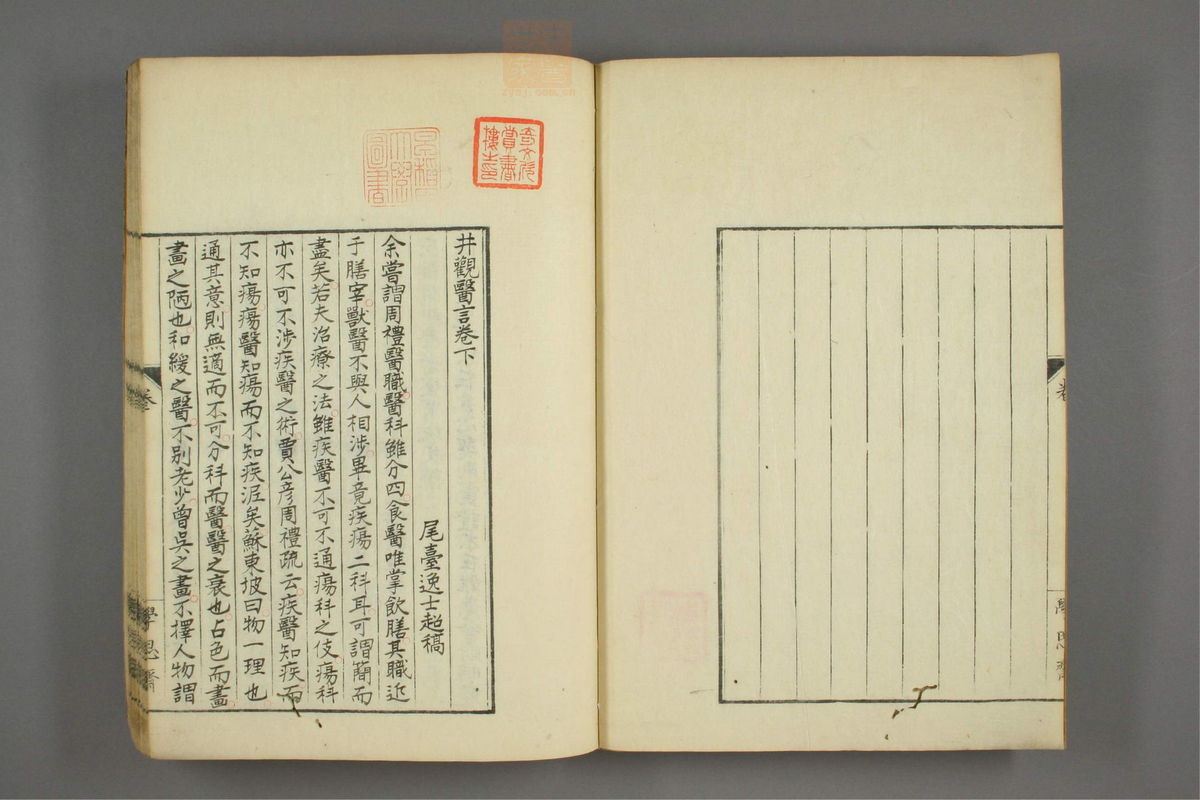 井觀醫言卷下
尾臺逸士超稿
余嘗謂周禮醫職醫科雖分四食醫唯掌飲膳其職近
于膳宰獸醫不與人相涉畢竟疾瘍二科耳可謂簡而
盡矣若夫治療之法雖疾醫不可不通瘍科之伎瘍科
亦不可不涉疾醫之術賈公彦周禮疏云疾醫知疾而
不知瘍瘍醫知瘍而不知疾泥矣蘇東坡曰物一理也
通其意則無適而不可分科而醫醫之衰也占色而畫
畫之陋也和緩之醫不別老少曾吳之畫不擇人物謂
學思齋
奇文欣
賞書
樓之印
圖書
zysj.com.cn